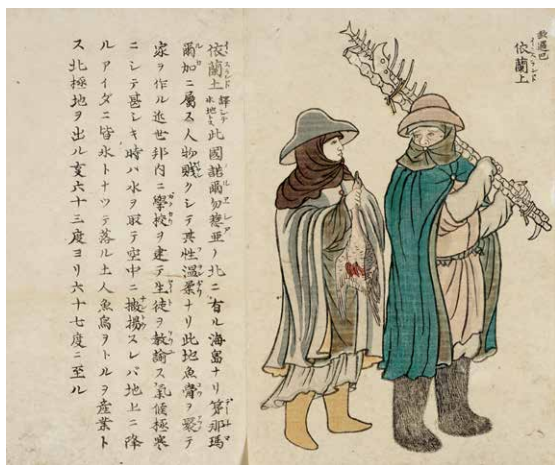 欧邏巴
依蘭土
依蘭土 譯シテ氷地ト云 此國諾爾勿惹亜ノ北ニ有ル海島ナリ第那瑪
爾加ニ屬ス人物賤クシテ其性温柔ナリ此地魚骨ヲ聚テ
家ヲ作ル近世邦内ニ學校ヲ建テ生徒ヲ教諭ス氣候極寒
ニシテ甚シキ時ハ水ヲ取テ空中ニ撒揚スレバ地上ニ降
ルアイダニ皆氷トナツテ落ル土人魚鳥ヲトルヲ産業ト
ス北極地ヲ出ル叓六十三度ヨリ六十七度ニ至ル